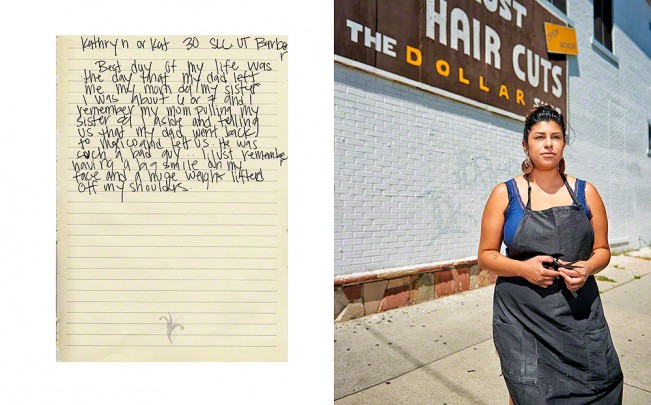 Kathryn or Kat 30 SLC. UT Barber
Best day of my life was
the day that my dad left
me my mom and my sister
I was about 6 or 7 and I
remember my mom pulling my
sister and I aside and telling
us that my dad went back
to mexico and left us. He was
such a bad guy... I just remember
having a big smile on my
face and a huge weight lifted
off my shoulders.
JUST
HAIR CUTS
THE DOLLAR
OPEN